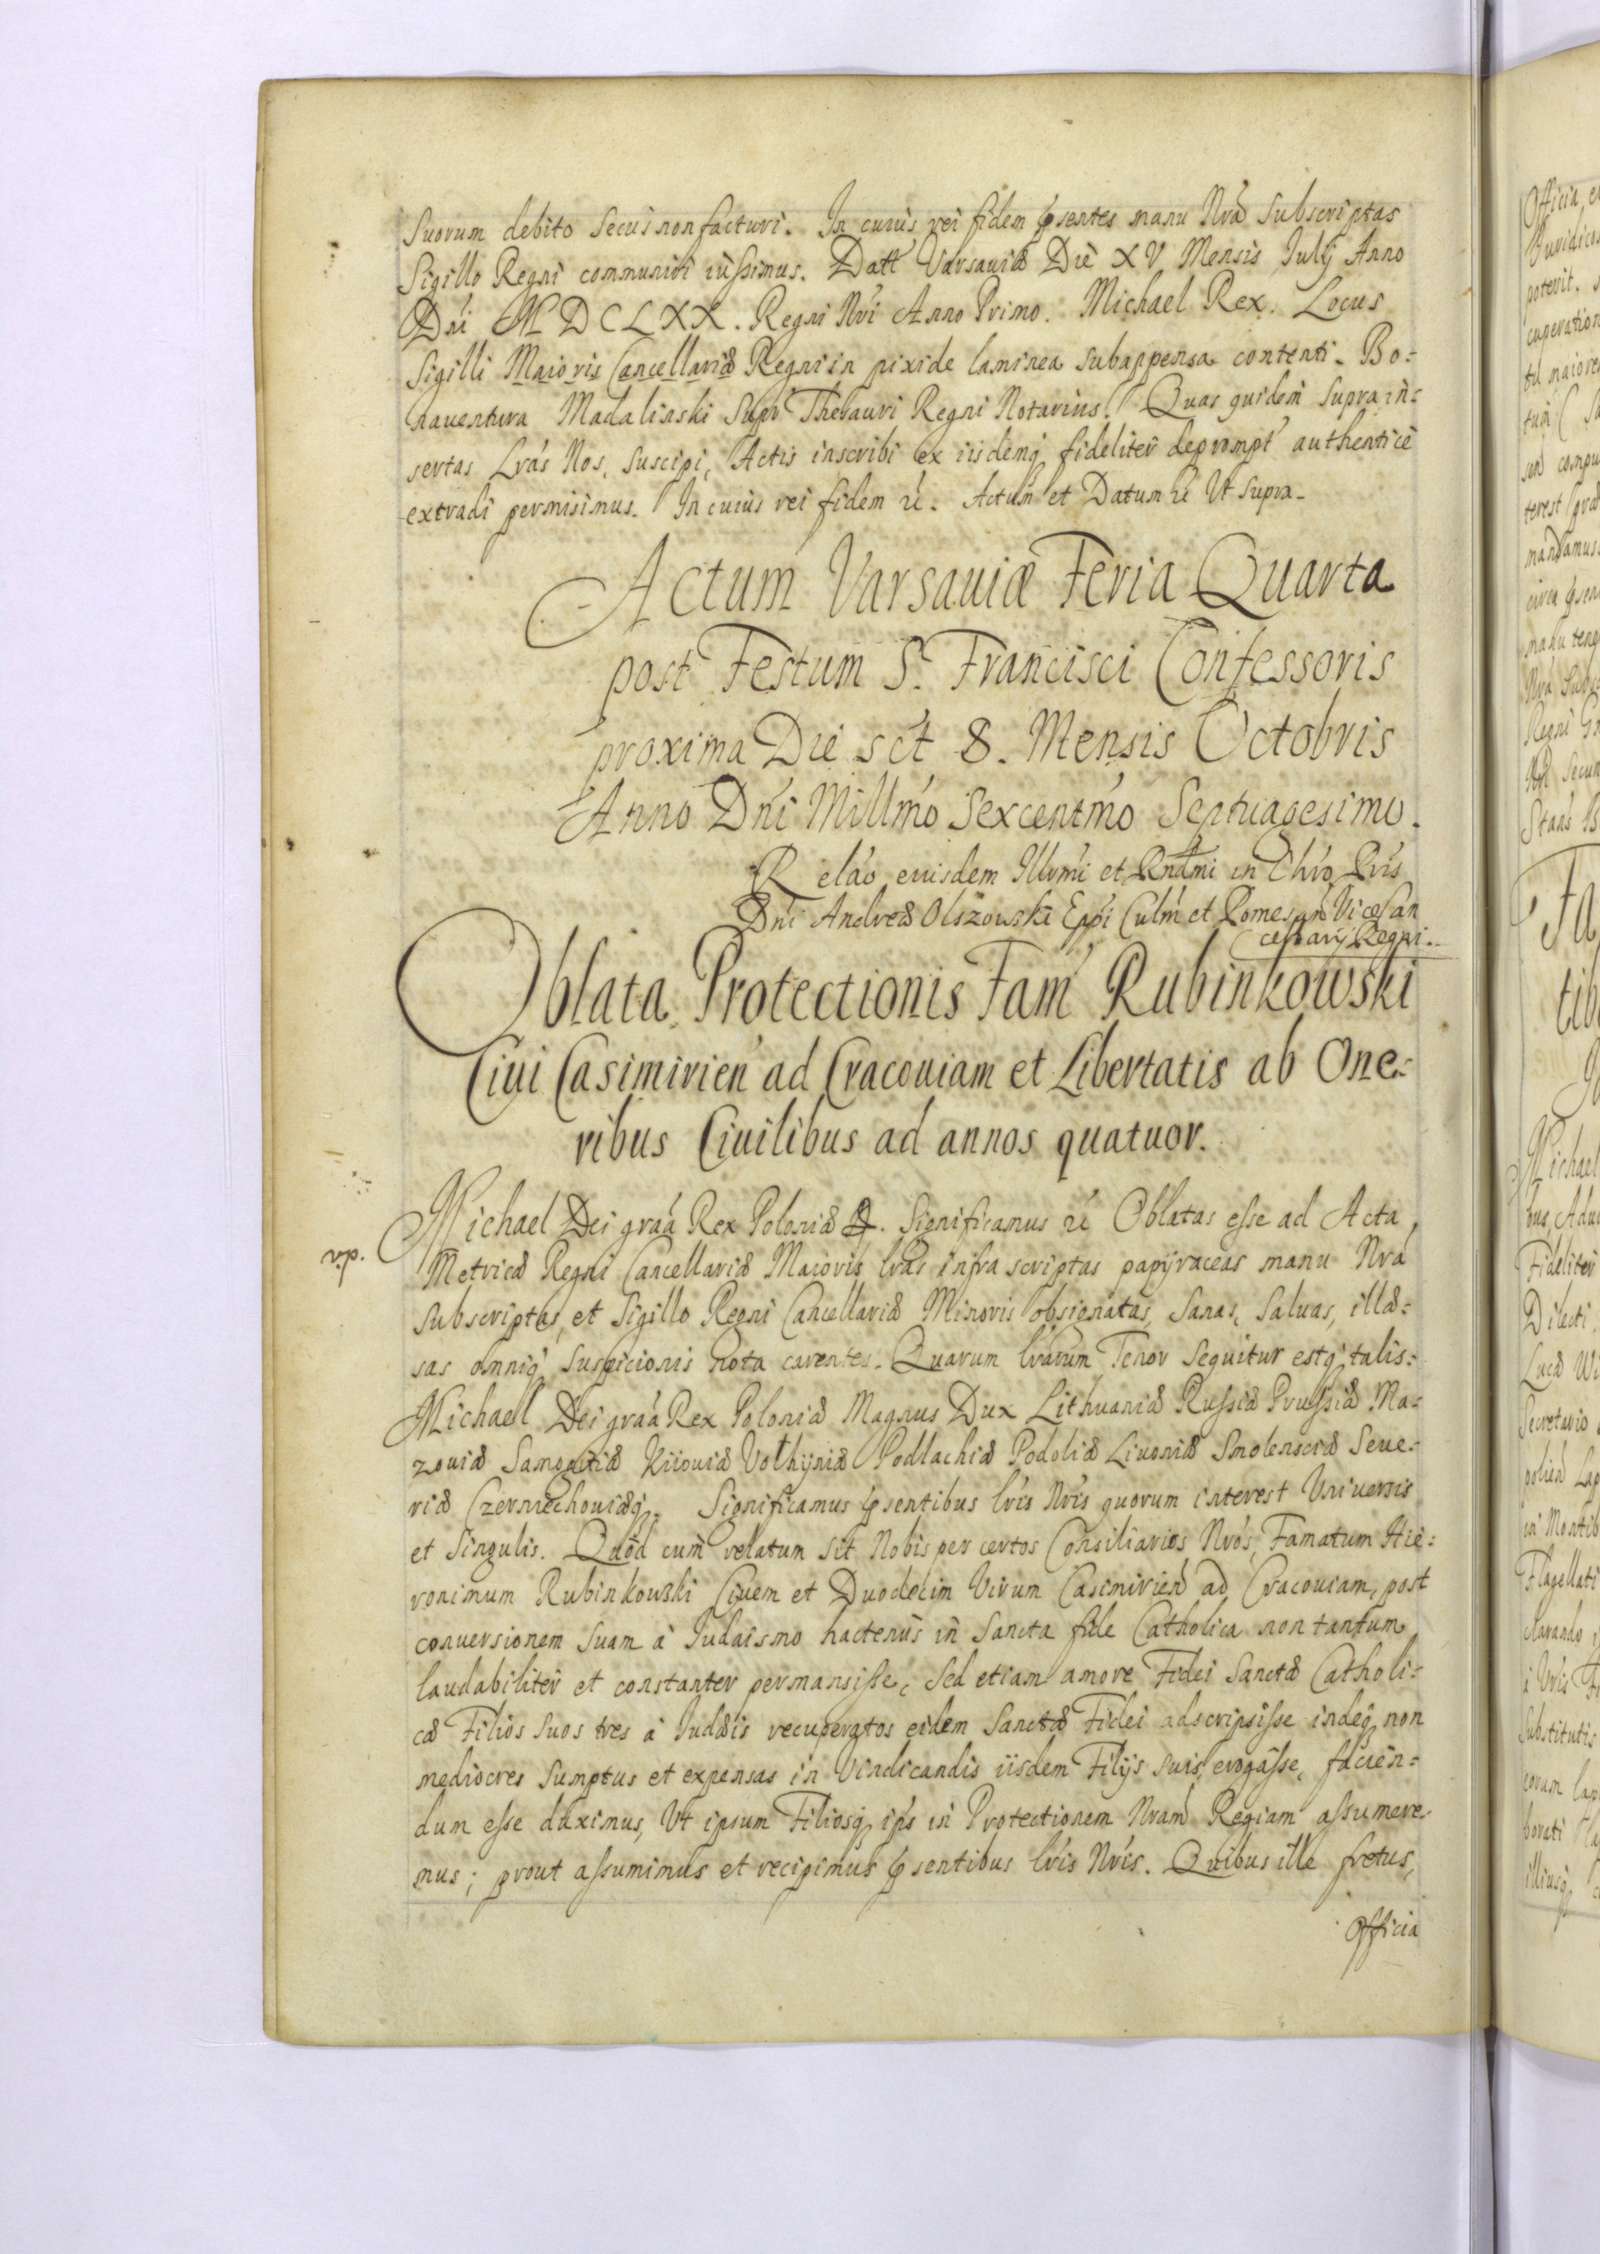 Suorum debito secus non facturi. In cuius rei fidem pr̃sentes manu Nrã subscriptas
Sigillo Regni communiri iussimus. Datt Varsaviæ Die XV Mensis Julÿ Anno
Dni MDCLXX. Regni Nri Anno Primo. Michael Rex. Locus
Sigilli Maioris Cancellariæ Regni in pixide laminea subappensa contenti. Bo-
naventura Madalinski Supr Thesauri Regni Notarius. Quas quidem supra in-
sertas Lras Nos, suscipi, Actis inscribi ex iisdemq fideliter deprompt authentice
extradi permisimus. In cuius rei fidem &. Actum et Datum & Ut supra.
Actum Varsaviæ Feria Quarta
post Festum S. Francisci Confessoris
proxima Die sct 8. Mensis Octobris
Anno Dni Millmo Sexcentmo Septuagesimo.
Relao eiusdem Illrmi et Rndmi in Chro Pris
Dni Andreæ Olszowski Eppi Culm et Pomesan Vicesan
cellarÿ Regni.
Oblata Protectionis Fam Rubinkowski
Civi Casimirien ad Cracouiam et Libertatis ab One-
ribus Ciuilibus ad annos quatuor.
v.p.
Michael Dei graa Rex Poloniæ &. Significamus & Oblatas esse ad Acta
Metricæ Regni Cancellariæ Maioris lras infra scriptas papÿraceas manu Nra
subscriptas, et Sigillo Regni Cancellariæ Minoris obsignatas, Sanas, Saluas, illæ-
sas omniq suspicionis nota carentes. Quarum lrarum Tenor sequitur estq talis:
Michael Dei graa Rex Poloniæ Magnus Dux Lithuaniæ Russiæ Prussiæ Ma-
zouiæ Samogitiæ Kiiouiæ Volhÿniæ Podlachiæ Podoliæ Liuoniæ Smolensciæ Seue-
riæ Czerniechouiæq. Significamus pr̃sentibus lris Nris quorum interest Universis
et Singulis. Quod cum relatum sit Nobis per certos Consiliarios Nros, Famatum Hie-
ronimum Rubinkowski Ciuem et Duodecim Virum Casimirien ad Cracouiam, post
conuersionem suam à Iudaismo hactenus in Sancta fide Catholica non tantum
laudabiliter et constanter permansisse, sed etiam amore Fidei Sanctæ Catholi-
cæ Filios suos tres à Iudæis recuperatos eidem Sanctæ Fidei adscripsisse indeq non
mediocres sumptus et expensas in vindicandis iisdem Filÿs suis erogasse, facien-
dum esse duximus, Ut ipsum Filiosq ips in Protectionem Nram Regiam assumere-
mus; prout assumimus et recipimus pr̃sentibus lris Nris. Quibus ille fretus,
Officia